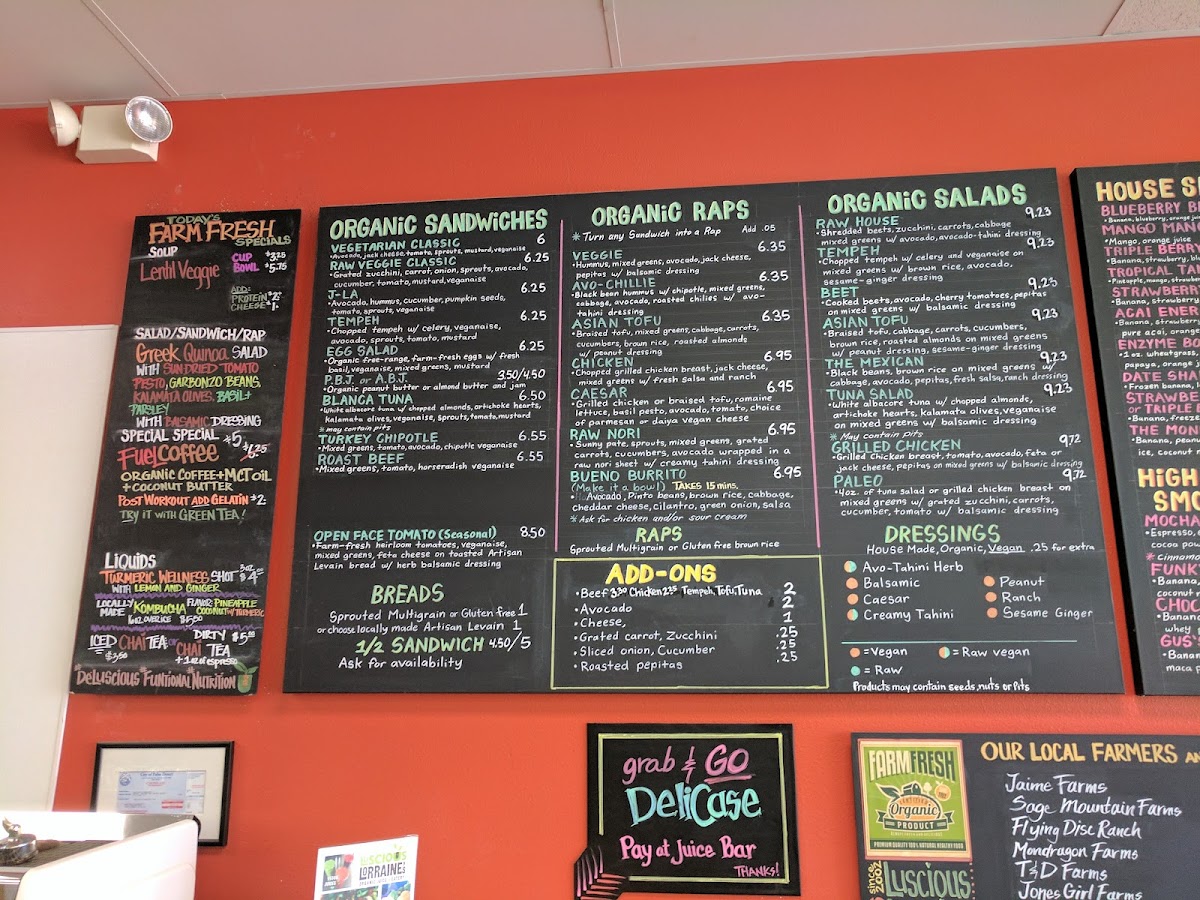 TODAY'S
FARM FRESH
SPECIALS
SOUP
Lentil Veggie
CUP $3.75
BOWL $5.75
ADD:
PROTEIN $2.
CHEESE $1.
SALAD/SANDWICH/RAP
Greek Quinoa SALAD
WITH SUNDRIED TOMATO
PESTO, GARBONZO BEANS,
KALAMATA OLIVES, BASIL+
PARSLEY
WITH BALSAMIC DRESSING
SPECIAL SPECIAL $5
Fuel COFFEE $6.25
ORGANIC COFFEE+MCT OIL
+COCONUT BUTTER
POST WORKOUT ADD GELATIN $2.
TRY IT WITH GREEN TEA!
LIQUIDS
TURMERIC WELLNESS SHOT
WITH LEMON AND GINGER
LOCALLY MADE KOMBUCHA FLAVOR: PINEAPPLE
ICED CHAI TEA OR DIRTY
CHAI TEA
+1 oz of espresso
DELUSCIOUS FUNTIONAL NUTRITION
ORGANIC SANDWICHES
VEGETARIAN CLASSIC 6
•Avocado, jack cheese, tomato, sprouts, mustard, veganaise
RAW VEGGIE CLASSIC 6.25
•Grated zucchini, carrot, onion, sprouts, avocado,
cucumber, tomato, mustard, veganaise
J-LA 6.25
•Avocado, hummus, cucumber, pumpkin seeds,
tomato, sprouts, veganaise
TEMPEH 6.25
•Chopped tempeh w/ celery, veganaise,
avocado, sprouts, tomato, mustard
EGG SALAD 6.25
•Organic free-range, farm-fresh eggs w/ fresh
basil, veganaise, mixed greens, mustard
P.B.J. or A.B.J. 3.50/4.50
•Organic peanut butter or almond butter and jam
BLANCA TUNA 6.50
•White albacore tuna w/ chopped almonds, artichoke hearts,
kalamata olives, veganaise, sprouts, tomato, mustard
*may contain pits
TURKEY CHIPOTLE 6.55
•Mixed greens, tomato, avocado, chipotle veganaise
ROAST BEEF 6.55
•Mixed greens, tomato, horseradish veganaise
OPEN FACE TOMATO (Seasonal) 8.50
•Farm-fresh heirloom tomatoes, veganaise,
mixed greens, feta cheese on toasted Artisan
Levain bread w/ herb balsamic dressing
BREADS
Sprouted Multigrain or Gluten free 1
or choose locally made Artisan Levain 1
1/2 SANDWICH 4.50/5
Ask for availability
ORGANIC RAPS
*Turn any Sandwich into a Rap Add .05
VEGGIE 6.35
•Hummus, mixed greens, avocado, jack cheese,
pepitas w/ balsamic dressing
AVO-CHILLIE 6.35
•Black bean hummus w/ chipotle, mixed greens,
cabbage, avocado, roasted chilies w/ avo-
tahini dressing
ASIAN TOFU 6.35
•Braised tofu, mixed greens, cabbage, carrots,
cucumbers, brown rice, roasted almonds
w/ peanut dressing
CHICKEN 6.95
•Chopped grilled chicken breast, jack cheese,
mixed greens w/ fresh salsa and ranch
CAESAR 6.95
•Grilled chicken or braised tofu, romaine
lettuce, basil pesto, avocado, tomato, choice
of parmesan or daiya vegan cheese
RAW NORI 6.95
•Sunny pate, sprouts, mixed greens, grated
carrots, cucumbers, avocado wrapped in a
raw nori sheet w/ creamy tahini dressing
BUENO BURRITO 6.95
(Make it a bowl!) TAKES 15 mins.
•Avocado, Pinto beans, brown rice, cabbage,
cheddar cheese, cilantro, green onion, salsa
*Ask for chicken and/or sour cream
RAPS
Sprouted Multigrain or Gluten free brown rice
ADD-ONS
•Beef 3.30 Chicken 2.25 Tempeh, Tofu, Tuna 2
•Avocado 2
•Cheese, 1
•Grated carrot, Zucchini .25
•Sliced onion, Cucumber .25
•Roasted pepitas .25
ORGANIC SALADS
RAW HOUSE 9.23
•Shredded beets, zucchini, carrots, cabbage
mixed greens w/ avocado, avocado-tahini dressing
TEMPEH 9.23
•Chopped tempeh w/ celery and veganaise on
mixed greens w/ brown rice, avocado,
sesame-ginger dressing
BEET 9.23
•Cooked beets, avocado, cherry tomatoes, pepitas
on mixed greens w/ balsamic dressing
ASIAN TOFU 9.23
•Braised tofu, cabbage, carrots, cucumbers,
brown rice, roasted almonds on mixed greens
w/ peanut dressing, sesame-ginger dressing
THE MEXICAN 9.23
•Black beans, brown rice on mixed greens w/
cabbage, avocado, pepitas, fresh salsa, ranch dressing
TUNA SALAD 9.23
•White albacore tuna w/ chopped almonds,
artichoke hearts, kalamata olives, veganaise
on mixed greens w/ balsamic dressing
*May contain pits
GRILLED CHICKEN 9.72
•Grilled Chicken breast, tomato, avocado, feta or
jack cheese, pepitas on mixed greens w/ balsamic dressing
PALEO 9.72
•4oz. of tuna salad or grilled chicken breast on
mixed greens w/ grated zucchini, carrots,
cucumber, tomato w/ balsamic dressing
DRESSINGS
House Made, Organic, Vegan .25 for extra
Avo-Tahini Herb
Balsamic
Caesar
Creamy Tahini
Peanut
Ranch
Sesame Ginger
=Vegan =Raw vegan
=Raw
Products may contain seeds, nuts or Pits
HOUSE
BLUEBERRY
•Banana, blueberry, orange
MANGO
•Mango, orange juice
TRIPLE BERRY
•Banana, strawberry,
TROPICAL
•Pineapple, mango,
STRAWBERRY
•Banana, strawberry
ACAI
•Banana, strawberry
pure acai, orange
ENZYME
•1 oz. wheatgrass,
papaya, orange
DATE
•Frozen banana,
or TRIPLE
•Banana, freeze
THE
•Banana, peanut
ice, coconut
HIGH
MOCHA
•Espresso,
cocoa
FUNKY
•Banana,
coconut
•Banana
whey
GUS'
•Banan
maca
grab & GO
DeliCase
Pay at Juice Bar
THANKS!
LUSCIOUS
LORRAINE'S
FARM FRESH
CERTIFIED
Organic
PRODUCT
PREMIUM QUALITY 100% NATURAL HEALTHY FOOD
since: 2002
Luscious
OUR LOCAL FARMERS
Jaime Farms
Sage Mountain Farms
Flying Disc Ranch
Mondragon Farms
T&D Farms
Jones Girl Farms